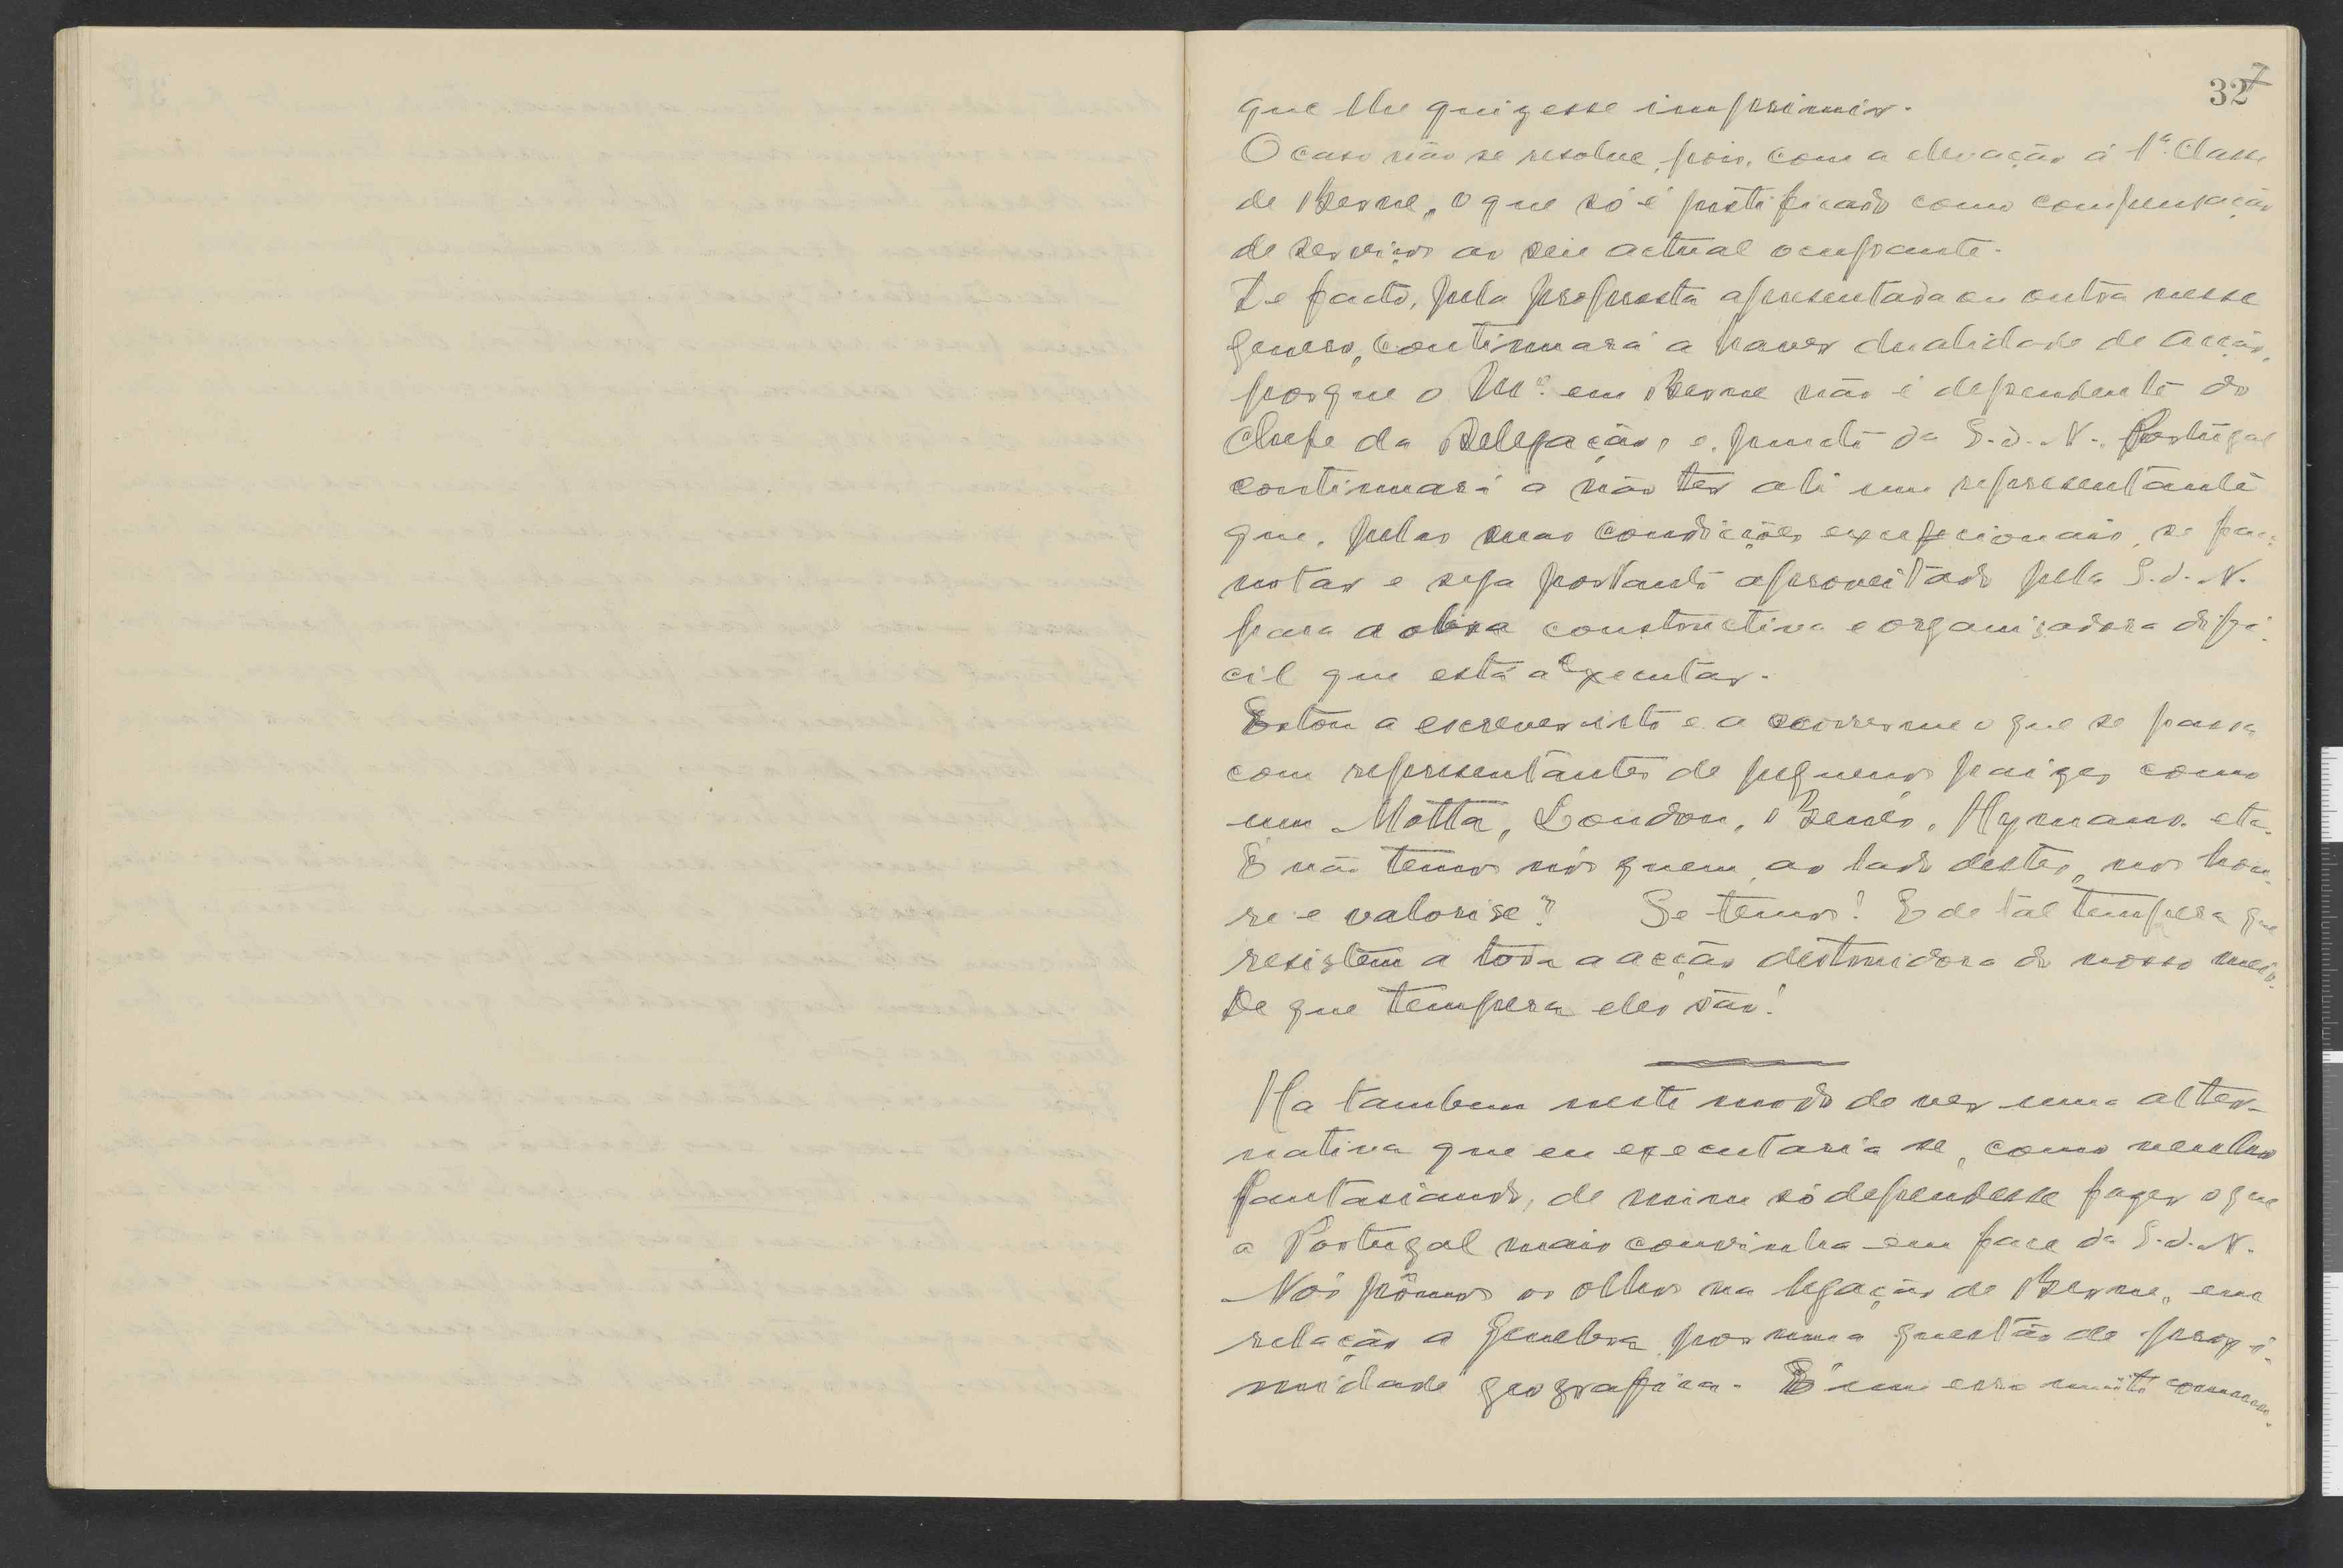 327
que lhe quizesse imprimir.
O caso não se resolve, pois, com a elevação á 1ª Classe
de Berne, o que só é justificado como compensação
de serviços ao seu actual ocupante.
De facto, pela proposta apresentada ou outra nesse
genero, continuará a haver dualidade de acção,
porque o Mº em Berne não é dependente do
Chefe da Delegação, e, junto da S.d.N., Portugal
continuará a não ter ali um representante
que, pelas suas condições excepcionais, se faça
notar e seja portanto aproveitado pela S.d.N.
para a obra constructiva e organisadora difi-
cil que está a executar.
Estou a escrever isto e a ocorrer-me o que se passa
com representantes de pequenos paizes como
um Motta, Loudon, Benés, Hymans. etc.
E não temos nós quem, ao lado destes, nos hon-
re e valorise? Se temos! E de tal tempera que
resistem a toda a acção destruidora do nosso meio.
De que tempera eles são!
Ha tambem neste modo de ver uma alter-
nativa que eu executaria se, como venho
fantasiando, de mim só dependesse fazer o que
a Portugal mais convinha em face da S.d.N.
Nós pômos os olhos na legação de Berne, em
relação a Genebra, por uma questão de proxi-
midade geografica. É um erro muito